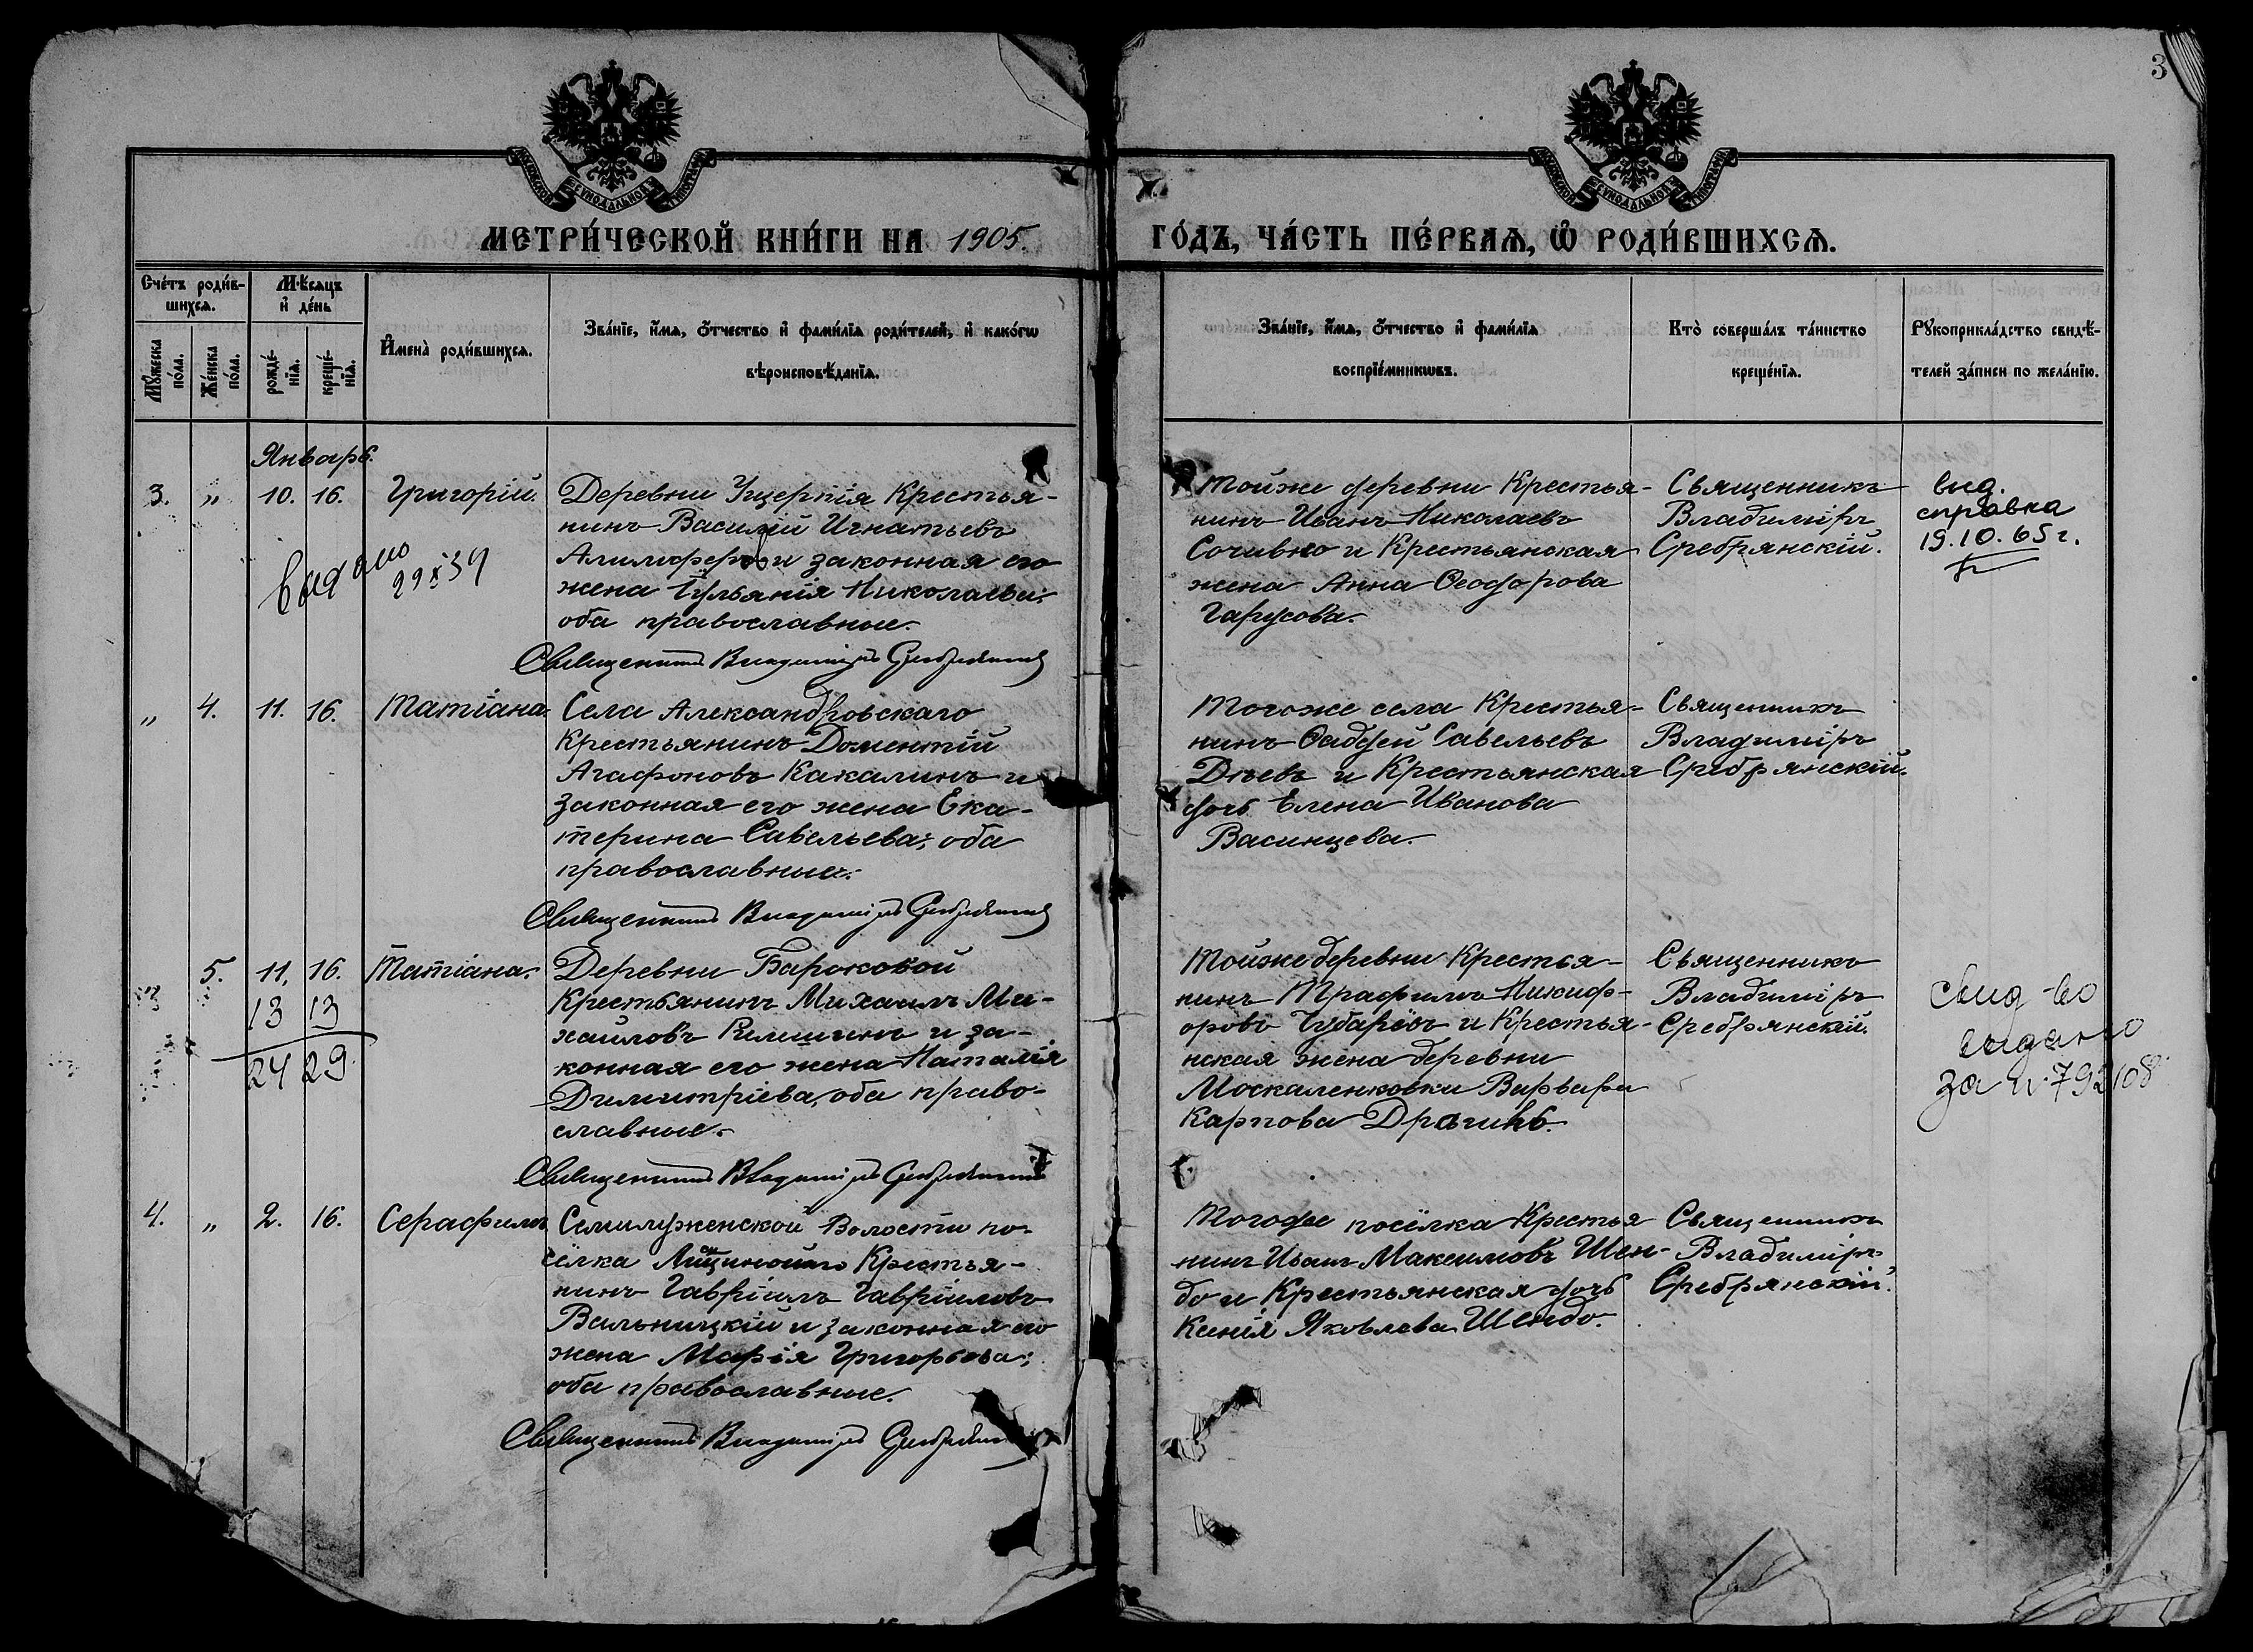 3
МЕТРИ́ЧЕСКОЙ КНИ́ГИ НА 1905.
ГО́ДЪ, ЧА́СТЬ ПЕ́РВАѦ, Ѿ РОДИ́ВШИХСѦ.
Сче́тъ роди́в-
шихсѧ.
Мꙋ́жеска по́ла.
Же́нска по́ла.
Мѣ́сяцъ
и҆ де́нь
рожде́-
нїѧ.
креще́-
нїѧ.
И҆мена̀ роди́вшихсѧ.
Зва́нїе, и҆́мѧ, ѻ҆́тчество и҆ фами́лїѧ роди́телей, и҆ како́гѡ
вѣроисповѣ́данїѧ.
Зва́нїе, и҆́мѧ, ѻ҆́тчество и҆ фами́лїѧ
воспрїе́мникѡвъ.
Кто̀ соверша́лъ та́инство
креще́нїѧ.
Рꙋкоприкла́дство свидѣ́-
телей за́писи по жела́нїю.
Январь.
3. „ 10. 16. Григорій.
Деревни Крестья-
нинъ Василій Игнатьевъ
и законная его
жена Іульянія Николаева;
оба православные.
Священникъ Владиміръ Сребрянскій
Тойже деревни Крестья-
нинъ Иванъ Николаевъ
Сочивко и Крестьянская
жена Анна Ѳеодорова
Гарусова.
Священникъ
Владиміръ
Сребрянскій.
выд.
справка
19.10.65 г.
Выдано
29 X 39
„ 4. 11. 16. Татіана.
Села Александровскаго
Крестьянинъ Доментій
Агафоновъ Какалинъ и
законная его жена Ека-
терина Савельева; оба
православные.
Священникъ Владиміръ Сребрянскій
Тогоже села Крестья-
нинъ Ѳаддей Савельевъ
Дѣевъ и Крестьянская
дочь Елена Иванова
Васинцева.
Священникъ
Владиміръ
Сребрянскій.
5. 11. 16. Татіана.
13 13
24 29
Деревни
Крестьянинъ Михаилъ Ми-
хаиловъ и за-
конная его жена Наталія
Димитріева, оба право-
славные.
Священникъ Владиміръ Сребрянскій
Тойже деревни Крестья-
нинъ Трафимъ Никиф-
оровъ Чубарёвъ и Крестья-
нская жена деревни
Москаленковки Варвара
Карпова
Священникъ
Владиміръ
Сребрянскій.
свид-во
выдано
за N. 792/08
4. „ 2. 16. Серафимъ
Волости по-
сёлка Крестья-
нинъ Гавріилъ Гавріиловъ
Вальницкій и законная его
жена Марія Григорьева;
оба православные.
Священникъ Владиміръ Сребрянскій
Тогоже посёлка Крестья
нинъ Иванъ Максимовъ Шен-
до и Крестьянская дочь
Ксенія Яковлева Шендо.
Священникъ
Владиміръ
Сребрянскій.